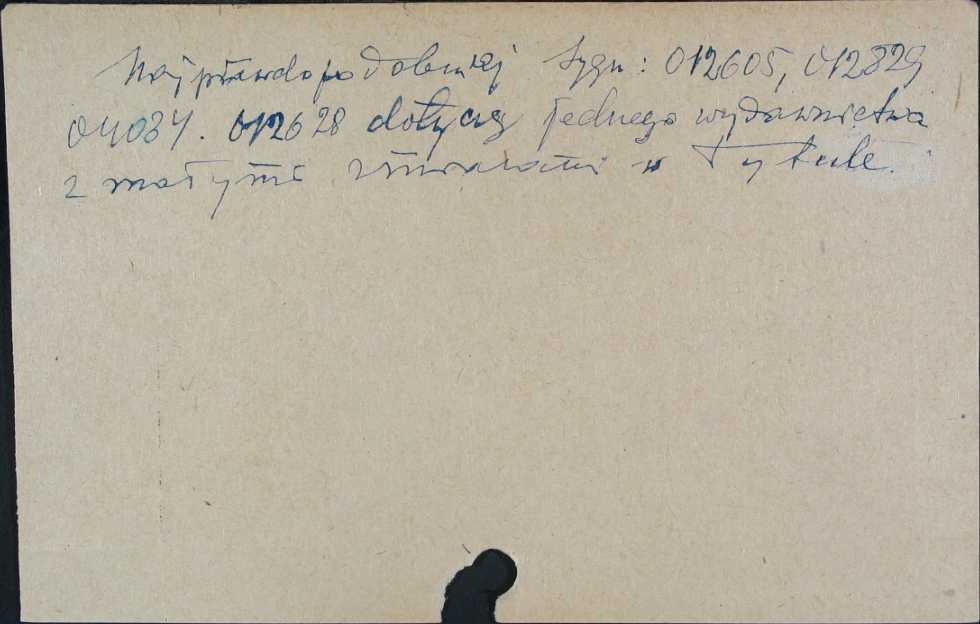 Najprawdopodobniej sygn: 012605, 012829
04034. 012628 dotyczą jednego wydawnictwa
z małymi zmianami w Tytule.